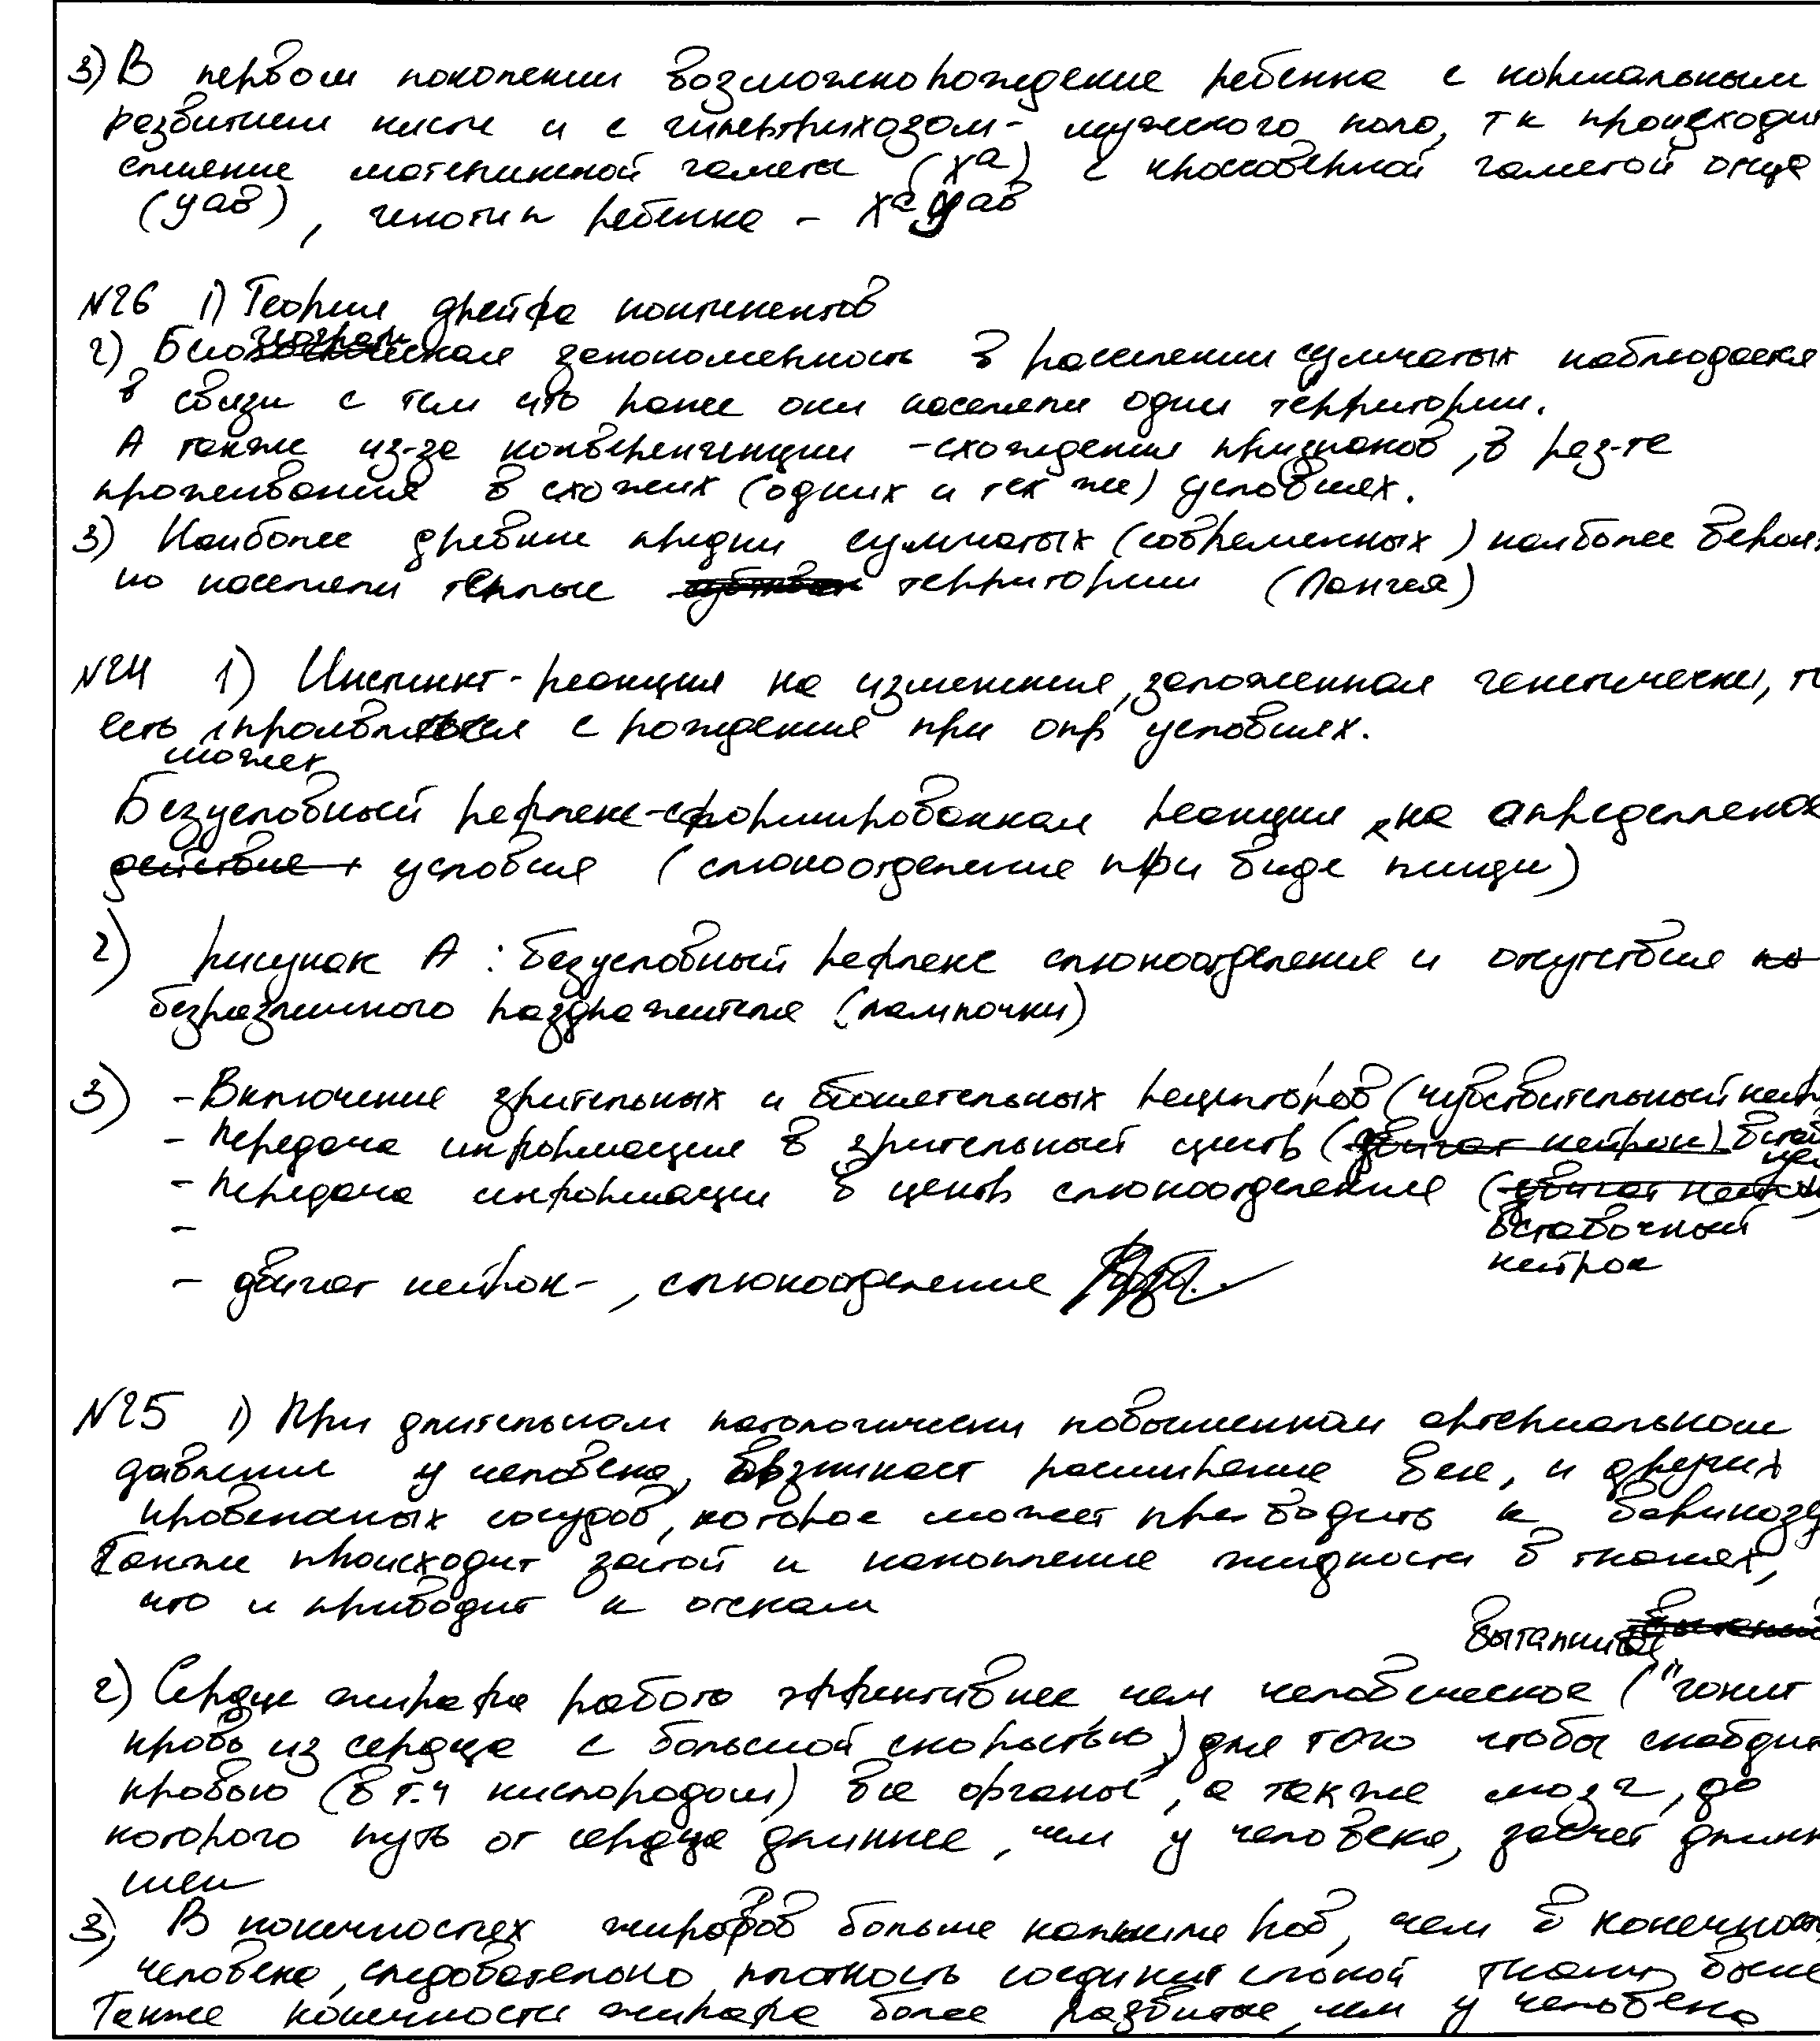 3) В первом поколении возможно рождение ребенка с нормальным
развитием кисти и с гипертрихозом - мужского пола, т к происходит
слияние материнской гаметы (Xᵃ) с кроссоверной гаметой отца
(Yᵃᵇ), генотип ребенка - XᵃYᵃᵇ
№26 1) Теория дрейфа континентов
2) Биогеограф закономерность в расселении сумчатых наблюдается
в связи с тем что ранее они населяли одни территории.
А также из-за конвергенции - схождения признаков, в рез-те
проживания в схожих (одних и тех же) условиях.
3) Наиболее древние предки сумчатых (современных) наиболее вероят
но населяли тёплые территории (Пангея)
№24 1) Инстинкт - реакция на изменение, заложенная генетически, то
есть проявляться с рождения при опр условиях.
может
Безусловный рефлекс - сформированная реакция на определенное
действие условия (слюноотделение при виде пищи)
2) рисунок А : безусловный рефлекс слюноотделения и отсутствие
безразличного раздражителя (лампочки)
3) - Включение зрительных и обонятельных рецепторов (чувствительный нейр
- Передача информации в зрительный центр (двигат нейрон)
- Передача информации в центр слюноотделения
вставочный
нейрон
-
- двигат нейрон - , слюноотделение
№25 1) При длительном патологически повышенном артериальном
давлении у человека, возникает расширение вен, и других
кровеносных сосудов, которое может приводить к варикозу
Также происходит застой и накопление жидкости в тканях,
что и приводит к отекам
2) Сердце жирафа работа эффективнее, чем человеческое ("гонит
кровь из сердца с большой скоростью) для того чтобы снабдить
кровью (в т.ч кислородом) все органы, а также мозг, до
которого путь от сердца длиннее, чем у человека, засчет длинн
шеи
3) В конечностях жирафов больше капилляров, чем в конечностях
человека, следовательно плотность соединительной ткани выше
Также конечности жирафа более развитые, чем у человека